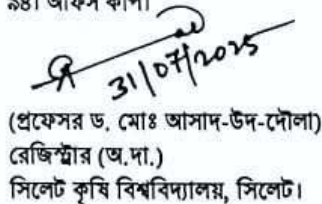 ৯৪। অফিস কপি।
31/07/2025
(প্রফেসর ড. মোঃ আসাদ-উদ-দৌলা)
রেজিস্ট্রার (অ.দা.)
সিলেট কৃষি বিশ্ববিদ্যালয়, সিলেট।